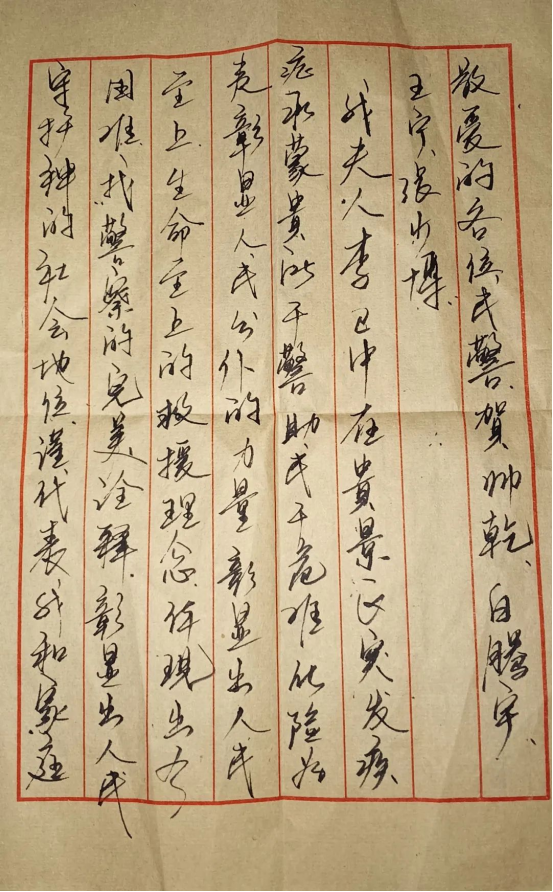 敬爱的各位民警、贺帅乾、白腾宇、
王宁、张少博
我夫人李 在贵景区突发疾
症承蒙贵派干警助民于危难化险为
夷彰显人民公仆的力量彰显出人民
至上生命至上的救援理念体现出有
困难、找警察的完美诠释、彰显出人民
守护神的社会地位谨代表我和家庭